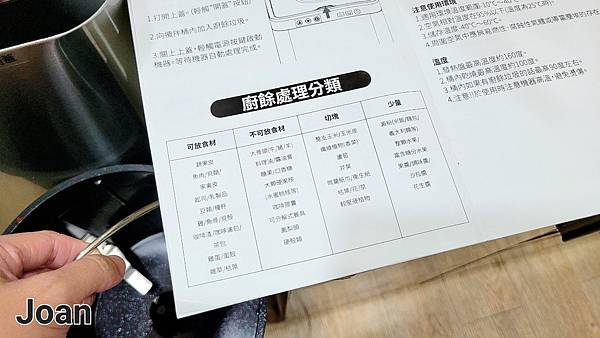 1.打開上蓋。(輕觸"開蓋"按鈕)
2.向攪拌桶內加入廚餘垃圾。
3.關上上蓋。輕觸電源按鍵啟動
機器。等待機器自動處理完成。
注意使用環境
1.適用環境溫度範圍-10°C~40°C
2.空氣相對溫度在95%以下(溫度為25°C時)。
3.儲存溫度-40°C~60°C。
4.周圍空氣中應無易燃性、腐蝕性氣體
溫度
1.發熱盤最高溫度約160度。
2.桶內乾燥最高溫度約100度。
3.桶內如果有廚餘垃圾的話最高90度左右。
4.注意!!於使用時注意機器高溫,避免燙傷。
廚餘處理分類
可放食材
蔬果皮
魚肉/貝類/
家禽皮
起司/乳製品
豆類/種籽
雞/魚骨/貝殼
咖啡渣/咖啡濾包/
茶包
雞蛋/蛋殼
雜草/枯葉
不可放食材
大骨頭(牛/豬/羊)
料理油/醬油膏
糖果/口香糖
大顆硬果核
(水蜜桃核等)
咖啡膠囊
可分解式餐具
鳳梨頭
硬殼類
切塊
整支玉米/玉米皮
纖維植物(香菜)
蘆筍
芹菜
微量紙巾/衛生紙
枯葉/花/莖
較堅硬植物
少量
澱粉(米飯/麵包/
義大利麵等)
整顆水果/
富含糖分水果
果醬/調味醬/
沙拉醬
花生醬
Joan